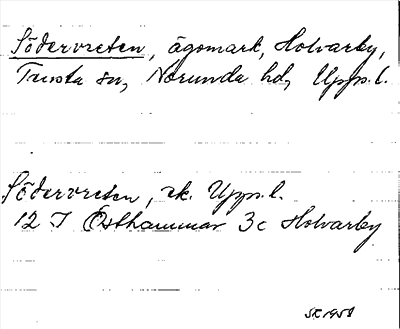 Södervreten, ägomark, Holvarby,
Tensta sn, Norunda hd, Upps.l.
Södervreten, ek. Upps.l.
12 I Östhammar 3c Holvarby
SK 1958